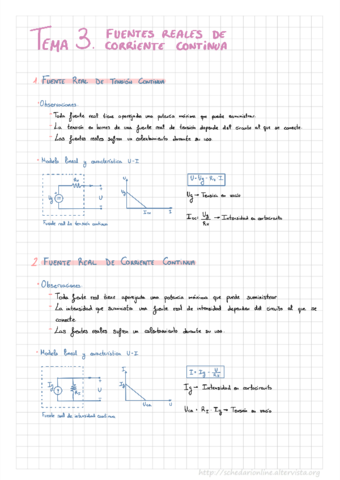 TEMA 3. FUENTES REALES DE
CORRIENTE CONTINUA
1. FUENTE REAL DE TENSIÓN CONTINUA
· Observaciones:
- Toda fuente real tiene aparejada una potencia máxima que puede suministrar.
- La tensión en bornes de una fuente real de tensión depende del circuito al que se conecte.
- Las fuentes reales sufren un calentamiento durante su uso.
· Modelo lineal y característica U-I.
Rg I
Ug U
Fuente real de tensión continua
U
Ug
Icc I
U = Ug - Rg I
Ug → Tensión en vacío
Icc = Ug / Rg → Intensidad en cortocircuito
2. FUENTE REAL DE CORRIENTE CONTINUA
· Observaciones:
- Toda fuente real tiene aparejada una potencia máxima que puede suministrar
- La intensidad que suministra una fuente real de intensidad dependerá del circuito al que se
conecte.
- Las fuentes reales sufren un calentamiento durante su uso.
· Modelo lineal y característica U-I.
I
Ig U
Fuente real de intensidad continua
I
Ig
U
Ig → Intensidad en cortocircuito
Ig → Tensión en vacío
http://schedarionline.altervista.org